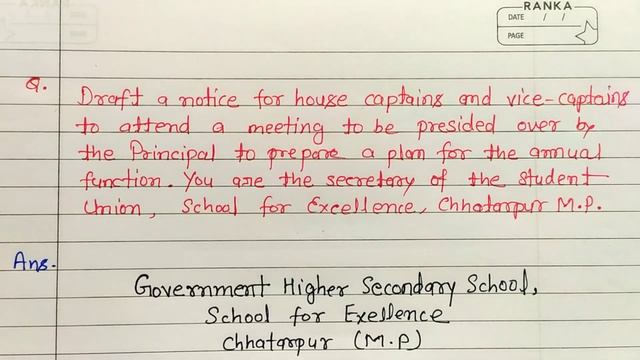 RANKA
DATE / /
PAGE
Q. Draft a notice for house captains and vice-captains
to attend a meeting to be presided over by
the Principal to prepare a plan for the annual
function. You are the secretary of the student
Union, School for Excellence, Chhatarpur M.P.
Ans.
Government Higher Secondary School,
School for Exellence
Chhatarpur (M.P)